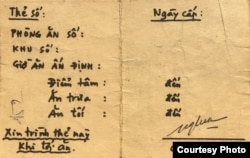 Thẻ số:
Ngày cấp:
PHÒNG ĂN SỐ:
KHU SỐ:
GIỜ ĂN ẤN ĐỊNH:
Điểm tâm: Đến
Ăn trưa: Đến
Ăn tối: Đến
Xin trình thẻ này
Khi tới ăn.
Courtesy Photo